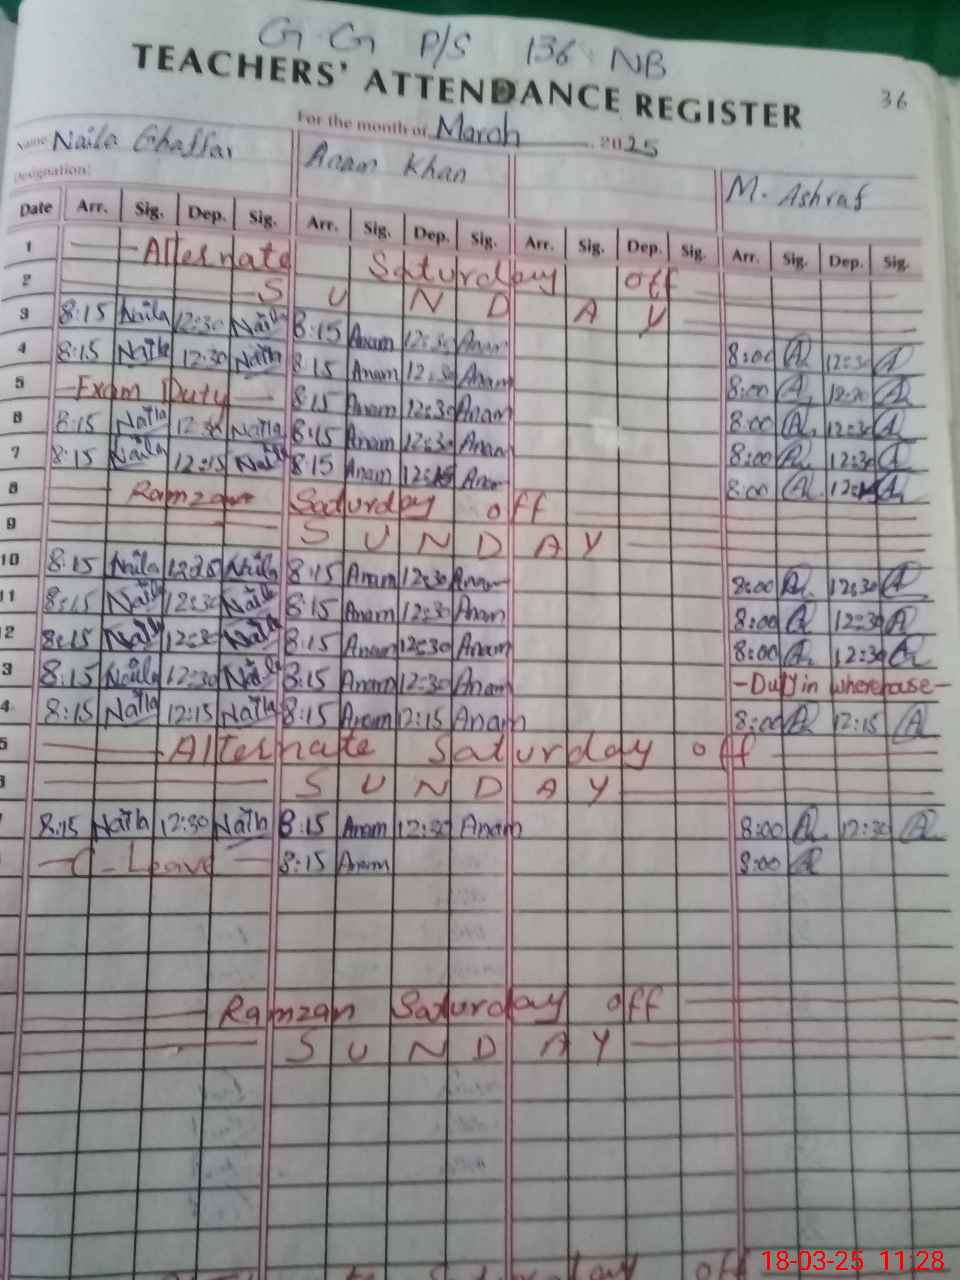 G.G P/S 136 NB
TEACHERS' ATTENDANCE REGISTER
36
For the month of March 2025
Name: Naila Ghaffar Anam Khan M. Ashraf
Designation:
Date Arr. Sig. Dep. Sig. Arr. Sig. Dep. Sig. Arr. Sig. Dep. Sig. Arr. Sig. Dep. Sig.
1 Alternate Saturday off
2 S U N D A Y
3 8:15 Naila 12:30 Naila 8:15 Anam 12:30 Anam 8:00 A 12:30 A
4 8:15 Naila 12:30 Naila 8:15 Anam 12:30 Anam 8:00 A A
5 Exam Duty 8:15 Anam 12:30 Anam 8:00 A 12:30 A
6 8:15 Naila 12:30 Naila 8:15 Anam 12:30 Anam 8:00 A 12:30 A
7 8:15 Naila 12:15 Naila 8:15 Anam 12:15 Anam 8:00 A A
8 Ramzan Saturday off
9 S U N D A Y
10 8:15 Naila Naila 8:15 Anam 12:30 Anam 8:00 A 12:30 A
11 8:15 Naila 12:30 Naila 8:15 Anam 12:30 Anam 8:00 A 12:30 A
2 8:15 Naila 12:30 Naila 8:15 Anam 12:30 Anam 8:00 A 12:30 A
3 8:15 Naila 12:30 Naila 8:15 Anam 12:30 Anam -Duty in wherehouse-
4 8:15 Naila 12:15 Naila 8:15 Anam 12:15 Anam 8:00 A 12:15 A
5 Alternate Saturday off
S U N D A Y
8:15 Naila 12:30 Naila 8:15 Anam 12:30 Anam 8:00 A 12:30 A
C-Leave 8:15 Anam 8:00 A
Ramzan Saturday off
S U N D A Y
Saturday off
18-03-25 11:28